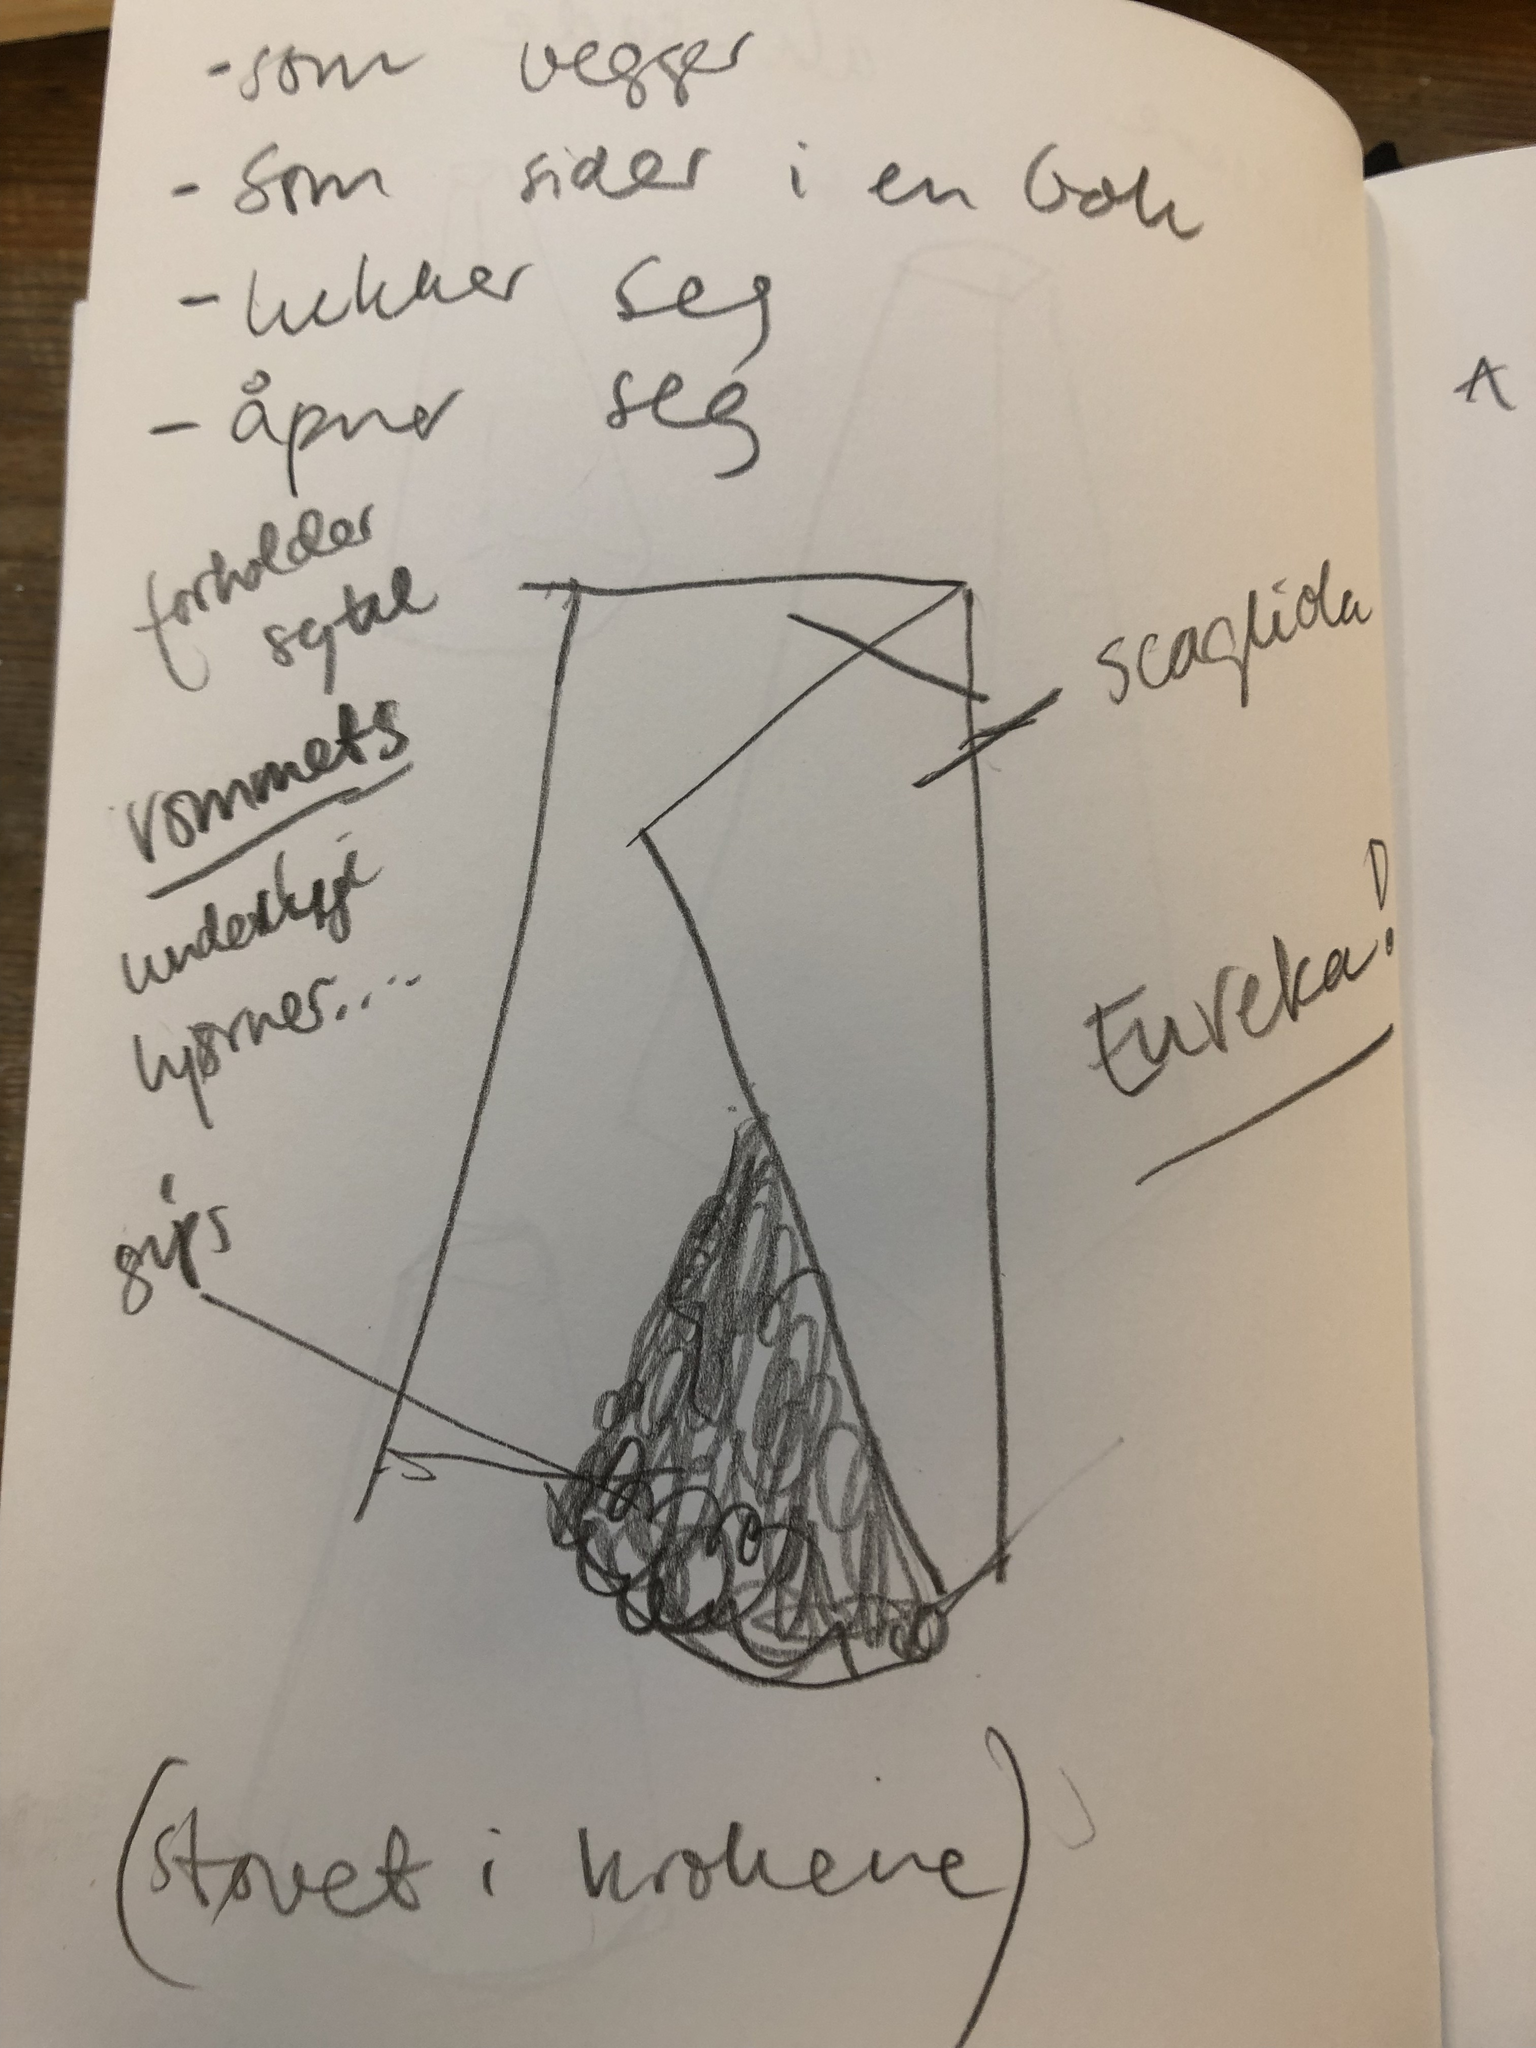 - som vegger
- som sider i en bok
- lukker seg
- åpner seg
forholder
seg til
rommets
hjørner....
gips
scagliola
Eureka!
(støvet i krokene)
A